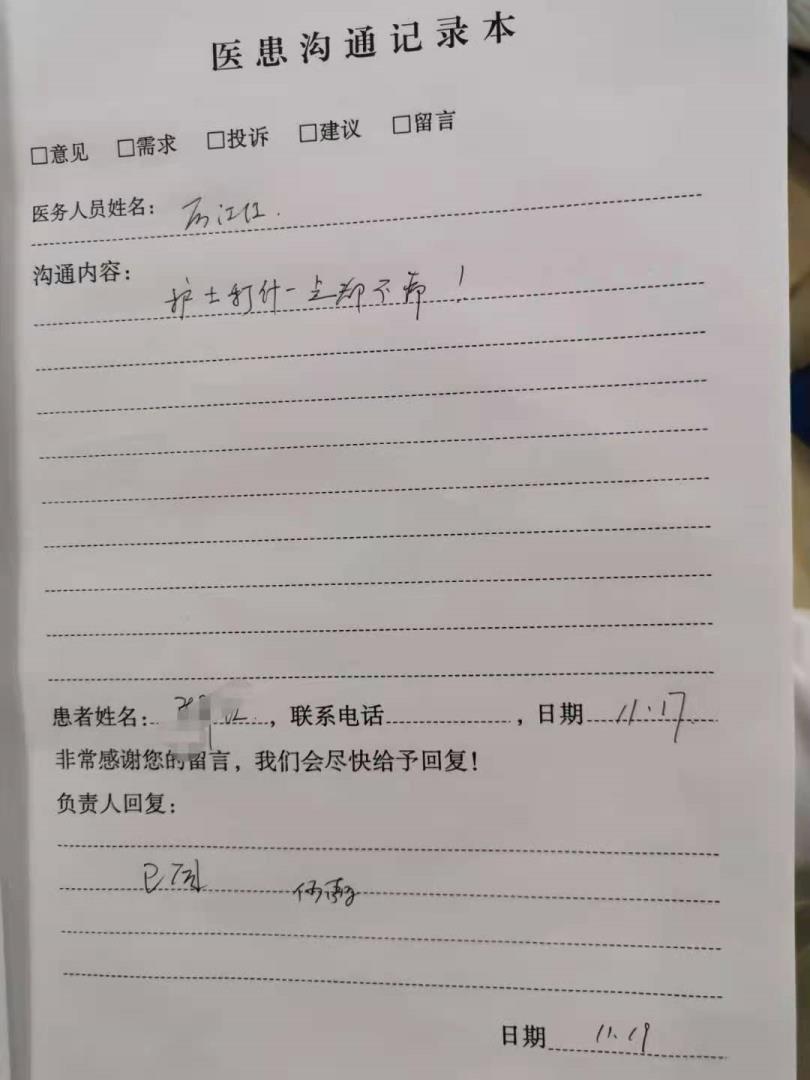 医患沟通记录本
□意见 □需求 □投诉 □建议 □留言
医务人员姓名：
沟通内容：
护士打什一点都不疼！
患者姓名： ，联系电话 ，日期 11.17.
非常感谢您的留言，我们会尽快给予回复！
负责人回复：
已阅
日期 11.19